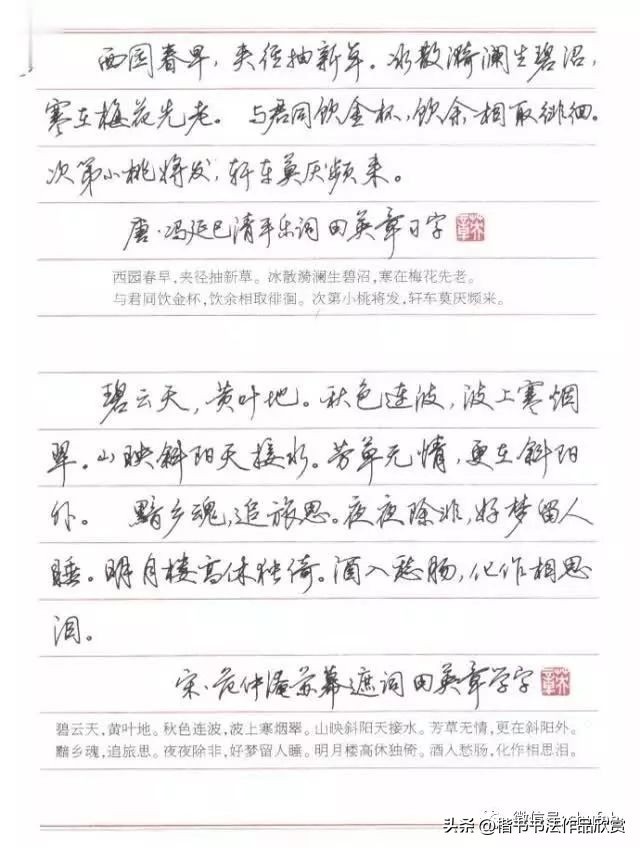 西园春早，夹径抽新草。冰散漪澜生碧沼，
寒在梅花先老。与君同饮金杯，饮余相取徘徊。
次第小桃将发，轩车莫厌频来。
唐·冯延巳清平乐词 田英章习字
西园春早，夹径抽新草。冰散漪澜生碧沼，寒在梅花先老。
与君同饮金杯，饮余相取徘徊。次第小桃将发，轩车莫厌频来。
碧云天，黄叶地。秋色连波，波上寒烟
翠。山映斜阳天接水。芳草无情，更在斜阳
外。黯乡魂，追旅思。夜夜除非，好梦留人
睡。明月楼高休独倚。酒入愁肠，化作相思
泪。
宋·范仲淹苏幕遮词 田英章学字
碧云天，黄叶地。秋色连波，波上寒烟翠。山映斜阳天接水。芳草无情，更在斜阳外。
黯乡魂，追旅思。夜夜除非，好梦留人睡。明月楼高休独倚。酒入愁肠，化作相思泪。
头条@楷书书法作品欣赏